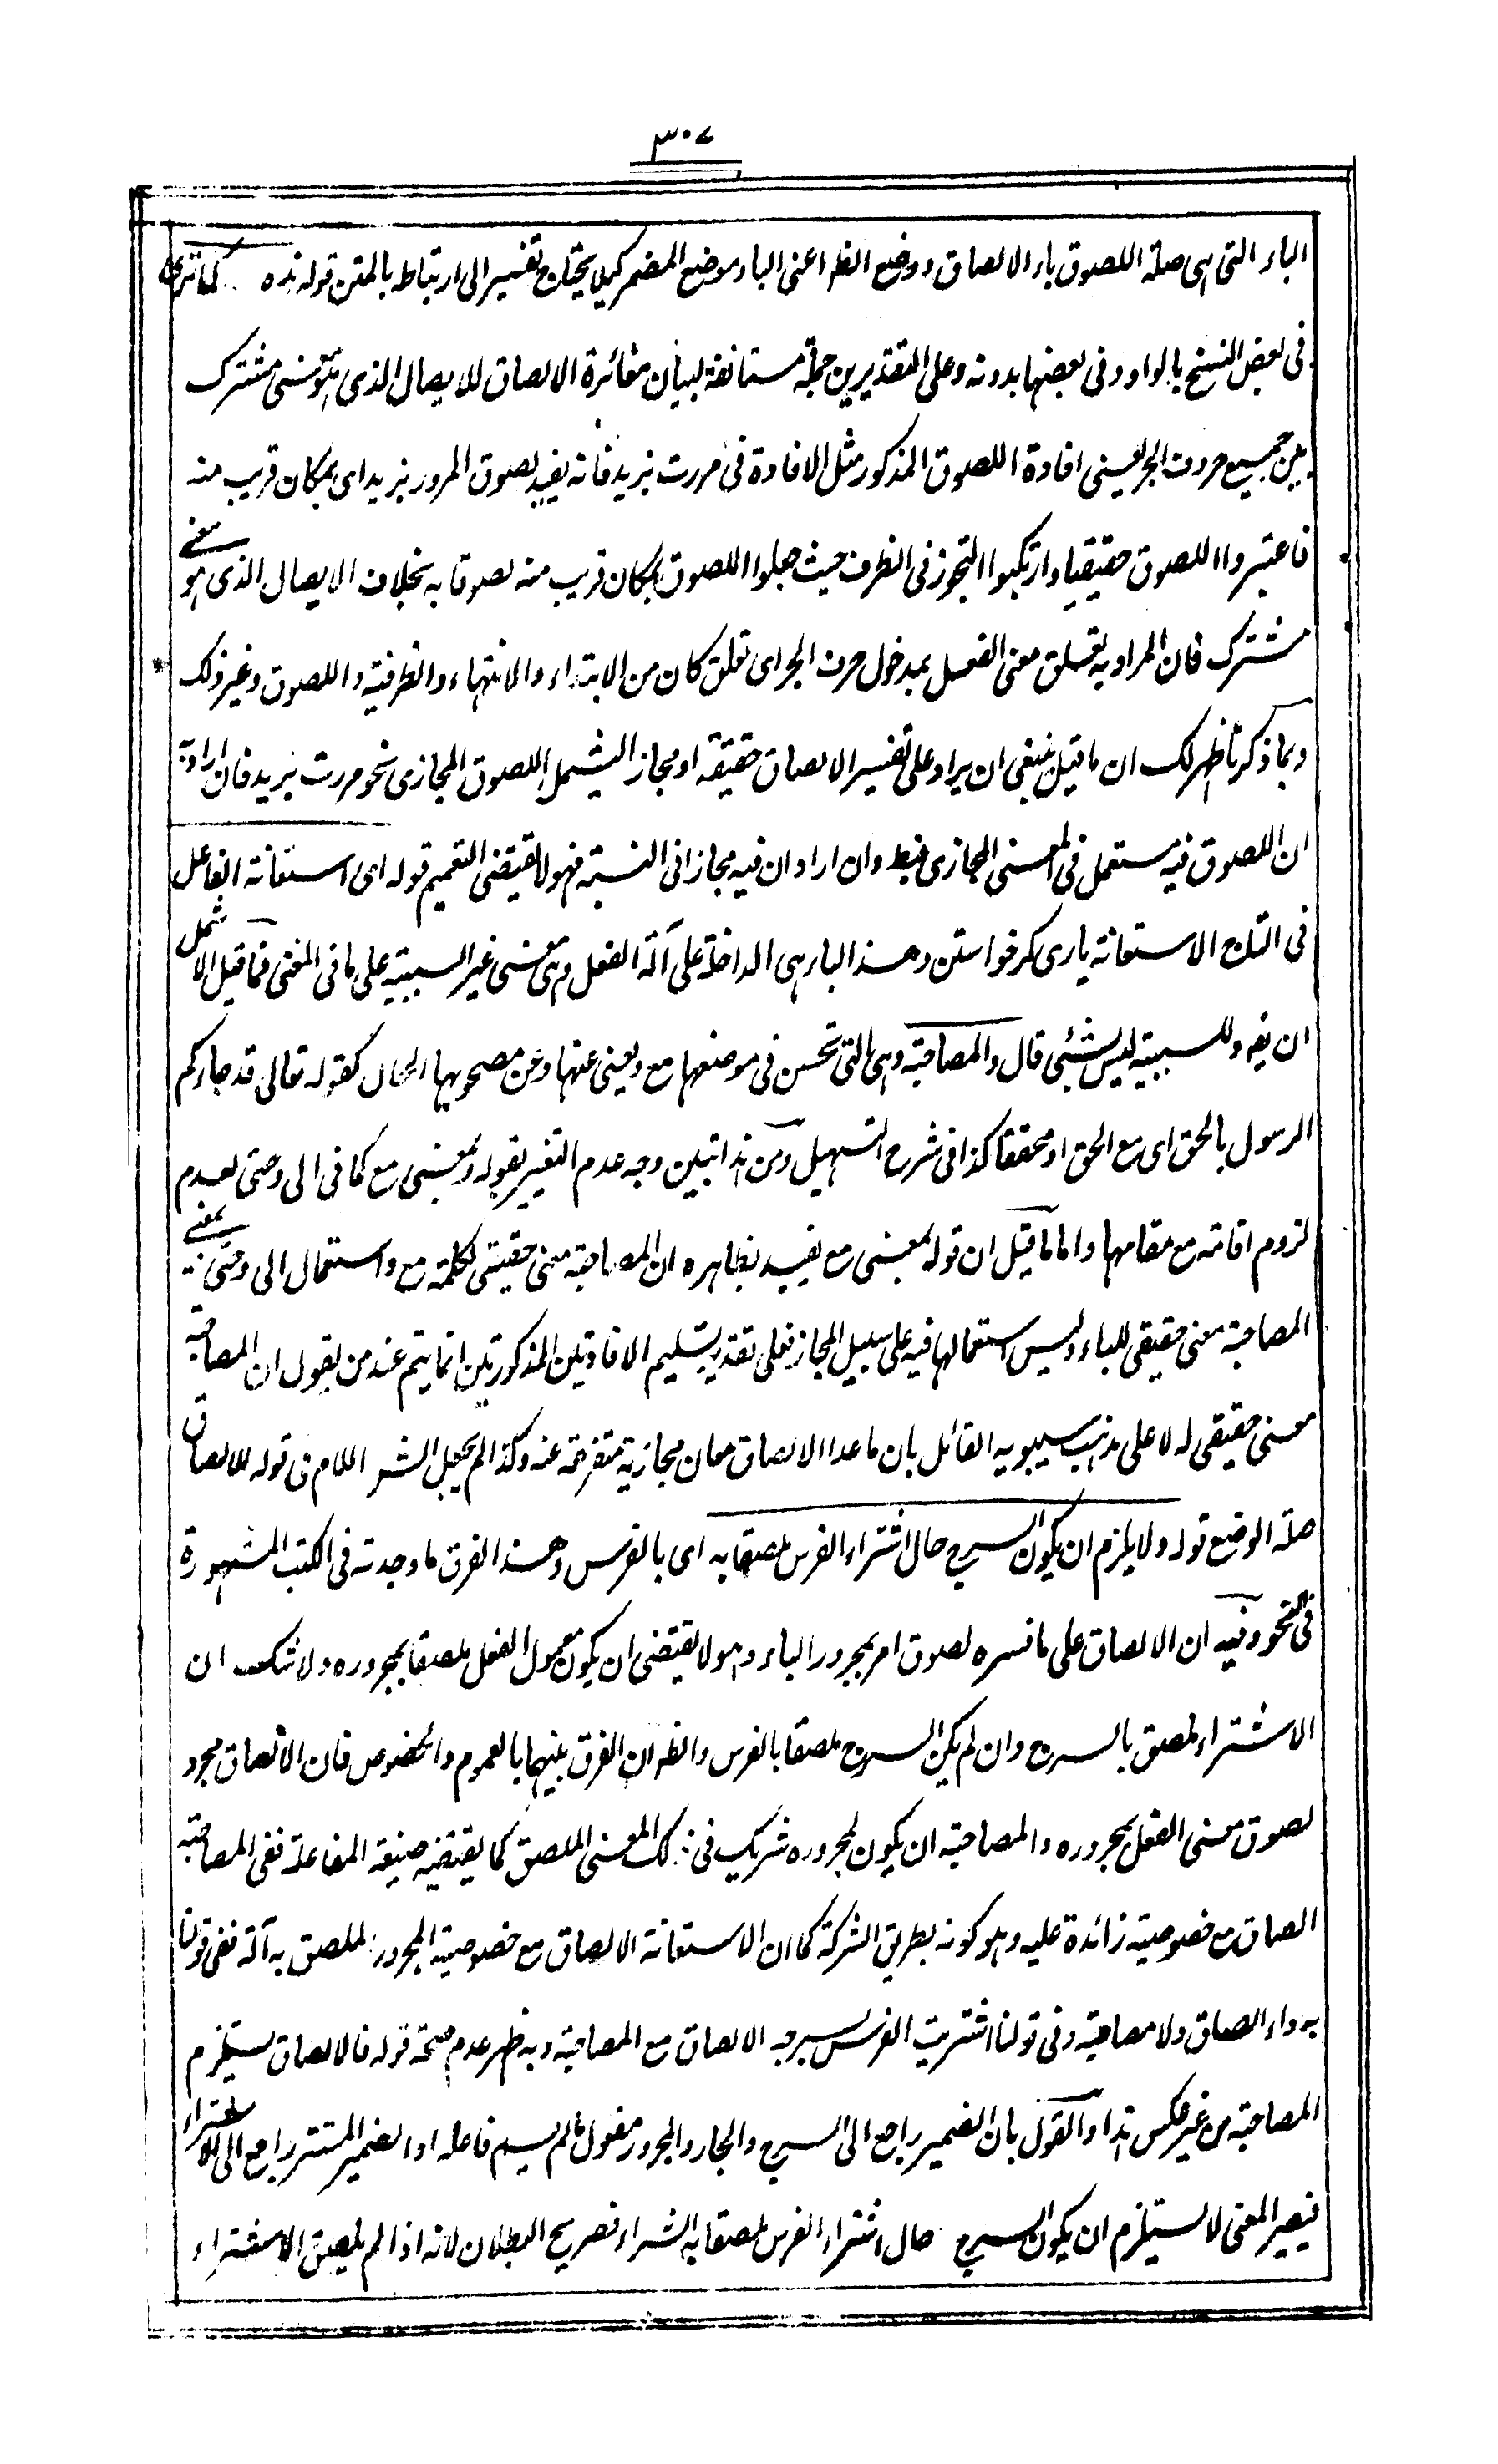 ٣٠٧
الباء التى هى صلة اللصوق باء الالصاق ووضع الظ اعنى الباء موضع المضمر كيلا يحتاج تفسير الى ارتباط بالمتن قوله هذه كما ترى
فى بعض النسخ بالواو وفى بعضها بدونه وعلى التقديرين جملة مستانفة لبيان مغائرة الالصاق للايصال الذى هو معنى مشترك
بين جميع حروف الجر يعنى افادة اللصوق المذكور مثل الافادة فى مررت بزيد فانه يفيد لصوق المرور بزيد اى بمكان قريب منه
فاعتبروا اللصوق حقيقيا وارتكبوا التجوز فى الظرف حيث جعلوا اللصوق بمكان قريب منه لصوقا به بخلاف الايصال الذى هو معنى
مشترك فان المراد به تعلق معنى الفعل بمدخول حرف الجر اى تعلق كان من الابتداء والانتهاء والظرفية واللصوق وغير ذلك
وبما ذكرنا ظهر لك ان ما قيل ينبغى ان يراد على تفسير الالصاق حقيقة او مجازا ليشمل اللصوق المجازى نحو مررت بزيد فان اراد به
ان اللصوق فيه مستعمل فى المعنى المجازى فبط وان اراد ان فيه مجازا فى النسبة فهو لا يقتضى التعميم قوله اى استعانة الفاعل
فى التاج الاستعانة يارى كر خواستن وهذا الباء هى الداخلة على آلة الفعل وهى معنى غير السببية على ما فى المغنى فما قيل الاشمل
ان يقو وللسببية ليس بشئى قال والمصاحبة وهى التى تحسن فى موضعها مع ويغنى عنها وعن مصحوبها الحال كقوله تعالى قد جاءكم
الرسول بالحق اى مع الحق او محققا كذا فى شرح التسهيل ومن هذا تبين وجه عدم التفسير بقوله وبمعنى مع كما فى الى وحتى لعدم
لزوم اقامة مع مقامها واما ما قيل ان قوله بمعنى مع يفيد بظاهره ان المصاحبة معنى حقيقى لكلمة مع واستعمال الى وحتى بمعنى
المصاحبة معنى حقيقى للباء وليس استعمالها فيه على سبيل المجاز فعلى تقدير تسليم الافادتين المذكورتين انما يتم عند من يقول ان المصاحبة
معنى حقيقى له لا على مذهب سيبويه القائل بان ما عدا الالصاق معان مجازية متفرعة عنه وكذا لم يجعل الشر اللام فى قوله للالصاق
صلة الوضع قوله ولا يلزم ان يكون السرج حال اشتراء الفرس ملصقا به اى بالفرس وهذا الفرق ما وجدته فى الكتب المشهورة
فى النحو وفيه ان الالصاق على ما فسره لصوق امر بمجرور الباء وهو لا يقتضى ان يكون معمول الفعل ملصقا بمجروره ولا شك ان
الاشتراء ملصق بالسرج وان لم يكن السرج ملصقا بالفرس والظ ان الفرق بينهما بالعموم والخصوص فان الالصاق مجرد
لصوق معنى الفعل بمجروره والمصاحبة ان يكون لمجروره شريك فى ذلك المعنى الملصق كما يقتضيه صيغة المفاعلة ففى المصاحبة
الصاق مع خصوصية زائدة عليه وهو كونه بطريق الشركة كما ان الاستعانة الالصاق مع خصوصية المجرور الملصق به آلة ففى قولنا
به داء الصاق ولا مصاحبة وفى قولنا اشتريت الفرس بسرجه الالصاق مع المصاحبة وبه ظهر عدم صحة قوله فالالصاق يستلزم
المصاحبة من غير عكس هذا والقول بان الضمير راجع الى السرج والجار والمجرور مفعول ما لم يسم فاعله او الضمير المستتر راجع الى الاشتراء
فيصير المعنى لا يستلزم ان يكون السرج حال اشتراء الفرس ملصقا به الشراء فصريح البطلان لانه اذا لم يلصق الاشتراء